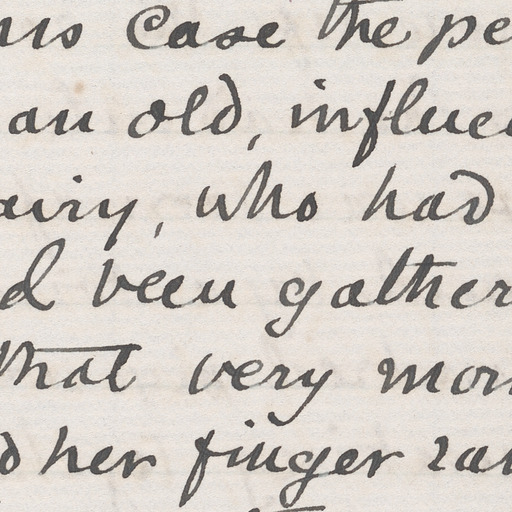 case the
an old, influe
airy, who had
d been gather
that very mor
d her finger ran